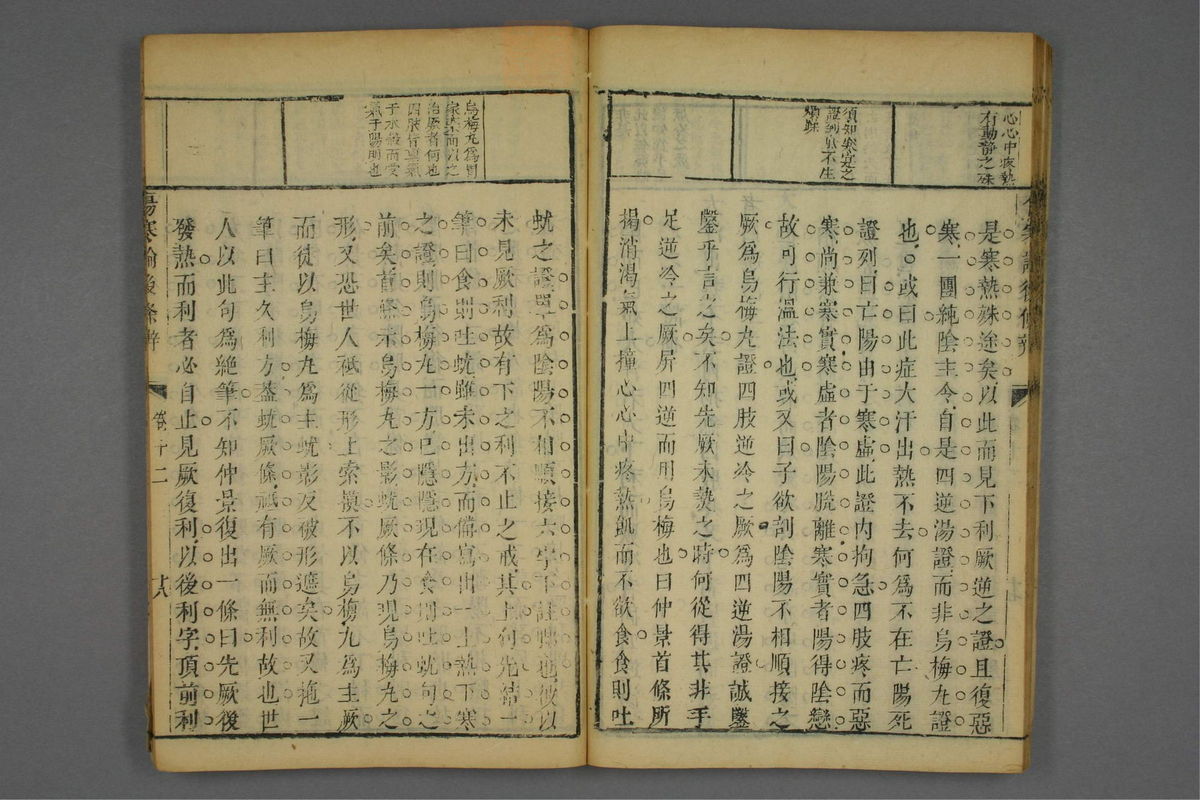 心心中疼熱
有動靜之殊
須知寒寔之
證到底不生
煩躁
是寒熱殊途矣以此而見下利厥逆之證且復惡
寒一團純陰主令自是四逆湯證而非烏梅丸證
也或曰此症大汗出熱不去何爲不在亡陽死
證列曰亡陽由于寒虛此證內拘急四肢疼而惡
寒尚兼寒實寒虛者陰陽脫離寒實者陽得陰戀
故可行溫法也或又曰子欲剖陰陽不相順接之
厥爲烏梅丸證四肢逆冷之厥爲四逆湯證誠鑿
鑿乎言之矣不知先厥未熱之時何從得其非手
足逆冷之厥屏四逆而用烏梅也曰仲景首條所
揭消渴氣上撞心心中疼熱飢而不欲食食則吐
烏梅丸爲胃
家藥而以之
治厥者何也
四肢皆稟氣
于水穀而受
氣于陽明也
蚘之證單爲陰陽不相順接六字下註脚也彼以
未見厥利故有下之利不止之戒其上句先結一
筆曰食則吐蚘雖未出方而備寫出一上熱下寒
之證則烏梅丸一方已隱隱現在食則吐蚘句之
前矣首條未烏梅丸之影蚘厥條乃現烏梅丸之
形又恐世人祗從形上索摸不以烏梅丸爲主厥
而徒以烏梅丸爲主蚘影反被形遮矣故又拖一
筆曰主久利方蓋蚘厥條祗有厥而無利故也世
人以此句爲絕筆不知仲景復出一條曰先厥後
發熱而利者必自止見厥復利以後利字頂前利
傷寒論後條辨
卷十二